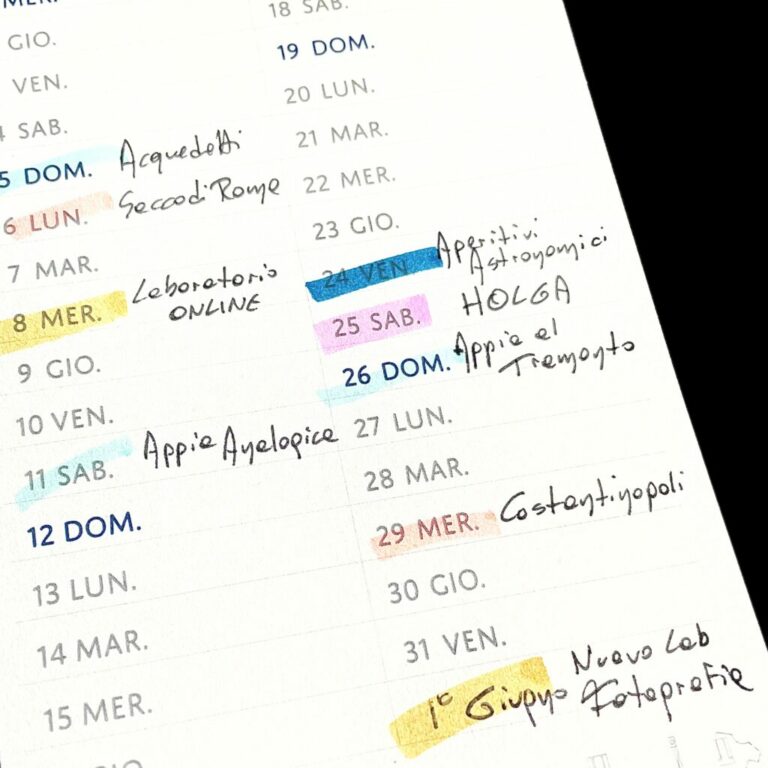 MER.
GIO.
VEN.
4 SAB.
5 DOM. Acquedotti
6 LUN. Sacco di Roma
7 MAR.
8 MER. Laboratorio
ONLINE
9 GIO.
10 VEN.
11 SAB. Appia Analogica
12 DOM.
13 LUN.
14 MAR.
15 MER.
GIO.
18 SAB.
19 DOM.
20 LUN.
21 MAR.
22 MER.
23 GIO.
24 VEN Aperitivi
Astronomici
25 SAB. HOLGA
26 DOM. Appia al
Tramonto
27 LUN.
28 MAR.
29 MER. Costantinopoli
30 GIO.
31 VEN.
1° Giugno Nuovo Lab
Fotografia